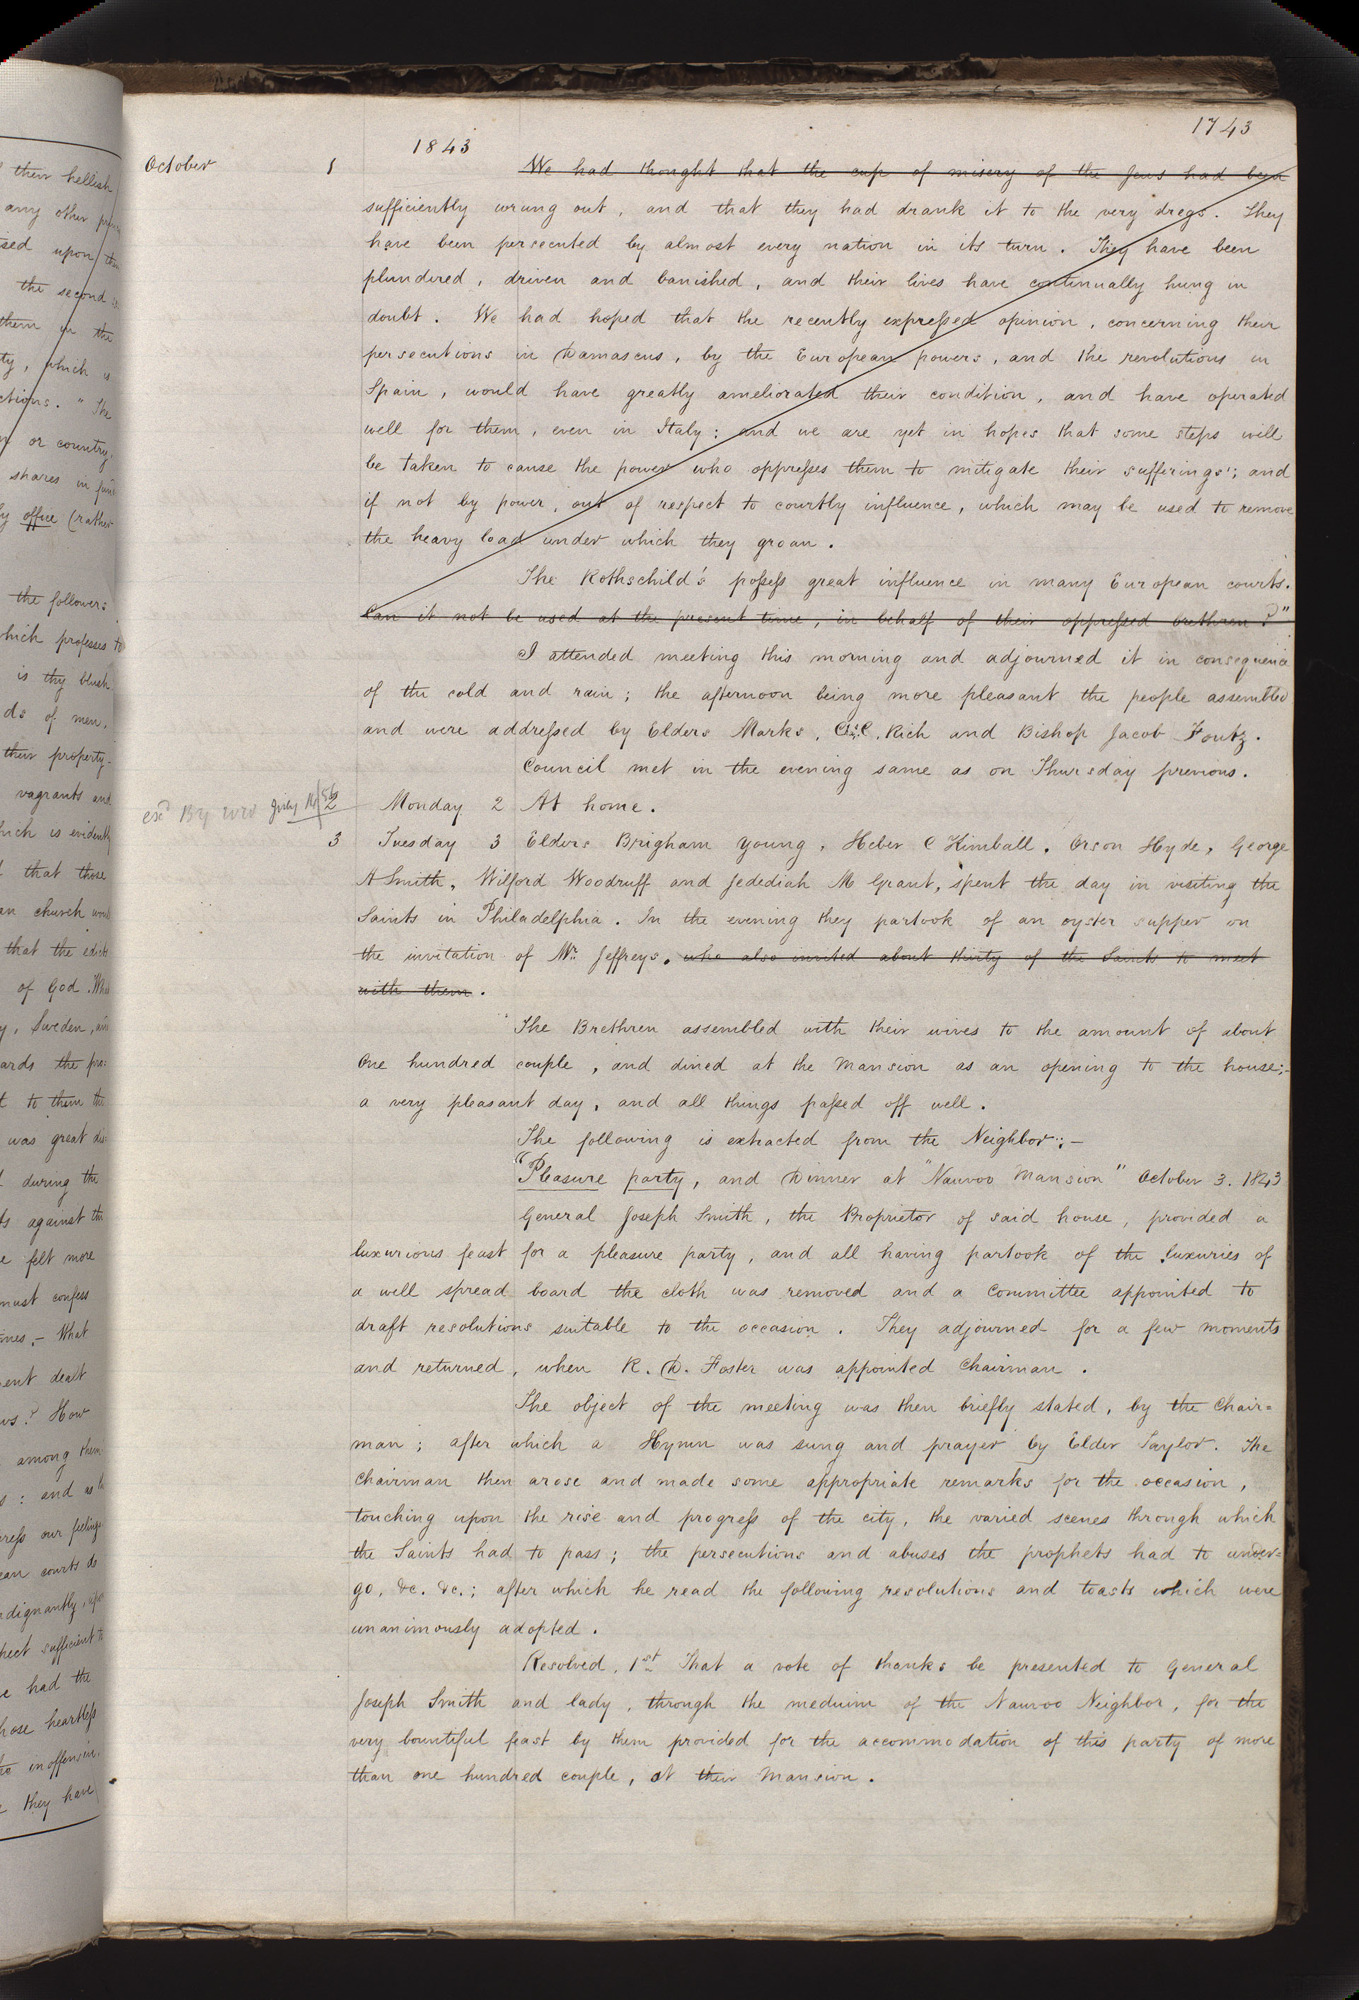 1743
1843
October 1 We had thought that the cup of misery of the Jews had been
sufficiently wrung out, and that they had drank it to the very dregs. They
have been persecuted by almost every nation in its turn. They have been
plundered, driven and banished, and their lives have continually hung in
doubt. We had hoped that the recently expressed opinion, concerning their
persecutions in Damascus, by the European powers, and the revolutions in
Spain, would have greatly ameliorated their condition, and have operated
well for them, even in Italy: and we are yet in hopes that some steps will
be taken to cause the power who oppresses them to mitigate their sufferings; and
if not by power, out of respect to courtly influence, which may be used to remove
the heavy load under which they groan.
The Rothschild's possess great influence in many European courts.
Can it not be used at the present time, in behalf of their oppressed brethren?"
I attended meeting this morning and adjourned it in consequence
of the cold and rain; the afternoon being more pleasant the people assembled
and were addressed by Elders Marks, C. C. Rich and Bishop Jacob Foutz.
Council met in the evening same as on Thursday previous.
2 Monday 2 At home.
3 Tuesday 3 Elders Brigham Young, Heber C Kimball, Orson Hyde, George
A Smith, Wilford Woodruff and Jedediah M Grant, spent the day in visiting the
Saints in Philadelphia. In the evening they partook of an oyster supper on
the invitation of Mr. Jeffreys. who also invited about thirty of the Saints to meet
with them.
The Brethren assembled with their wives to the amount of about
one hundred couple, and dined at the Mansion as an opening to the house;–
a very pleasant day, and all things passed off well.
The following is extracted from the Neighbor:–
"Pleasure party, and Dinner at "Nauvoo Mansion" October 3. 1843
General Joseph Smith, the Proprietor of said house, provided a
luxurious feast for a pleasure party, and all having partook of the luxuries of
a well spread board the cloth was removed and a committee appointed to
draft resolutions suitable to the occasion. They adjourned for a few moments
and returned, when R. D. Foster was appointed Chairman.
The object of the meeting was then briefly stated, by the Chair=
man; after which a Hymn was sung and prayer by Elder Taylor. The
Chairman then arose and made some appropriate remarks for the occasion,
touching upon the rise and progress of the city, the varied scenes through which
the Saints had to pass; the persecutions and abuses the prophets had to under=
go, &c. &c.; after which he read the following resolutions and toasts which were
unanimously adopted.
Resolved, 1st That a vote of thanks be presented to General
Joseph Smith and lady, through the medium of the Nauvoo Neighbor, for the
very bountiful feast by them provided for the accommodation of this party of more
than one hundred couple, at their Mansion.